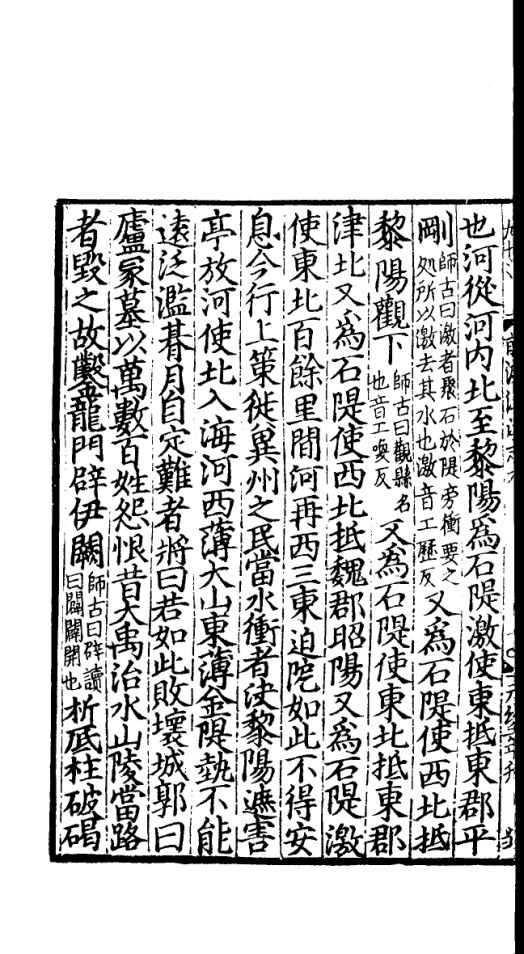 也河從河内北至黎陽爲石隄激使東抵東郡平
剛師古曰激者聚石於隄旁衝要之處所以激去其水也激音工歷反又爲石隄使西北抵
黎陽觀下師古曰觀縣名也音工喚反又爲石隄使東北抵東郡
津北又爲石隄使西北抵魏郡昭陽又爲石隄激
使東北百餘里間河再西三東迫阸如此不得安
息今行上策徙兾州之民當水衝者决黎陽遮害
亭放河使北入海河西薄大山東薄金隄埶不能
遠泛濫朞月自定難者將曰若如此敗壞城郭田
廬冢墓以萬數百姓怨恨昔大禹治水山陵當路
者毀之故鑿龍門辟伊闕師古曰辟讀曰闢闢開也析厎柱破碣